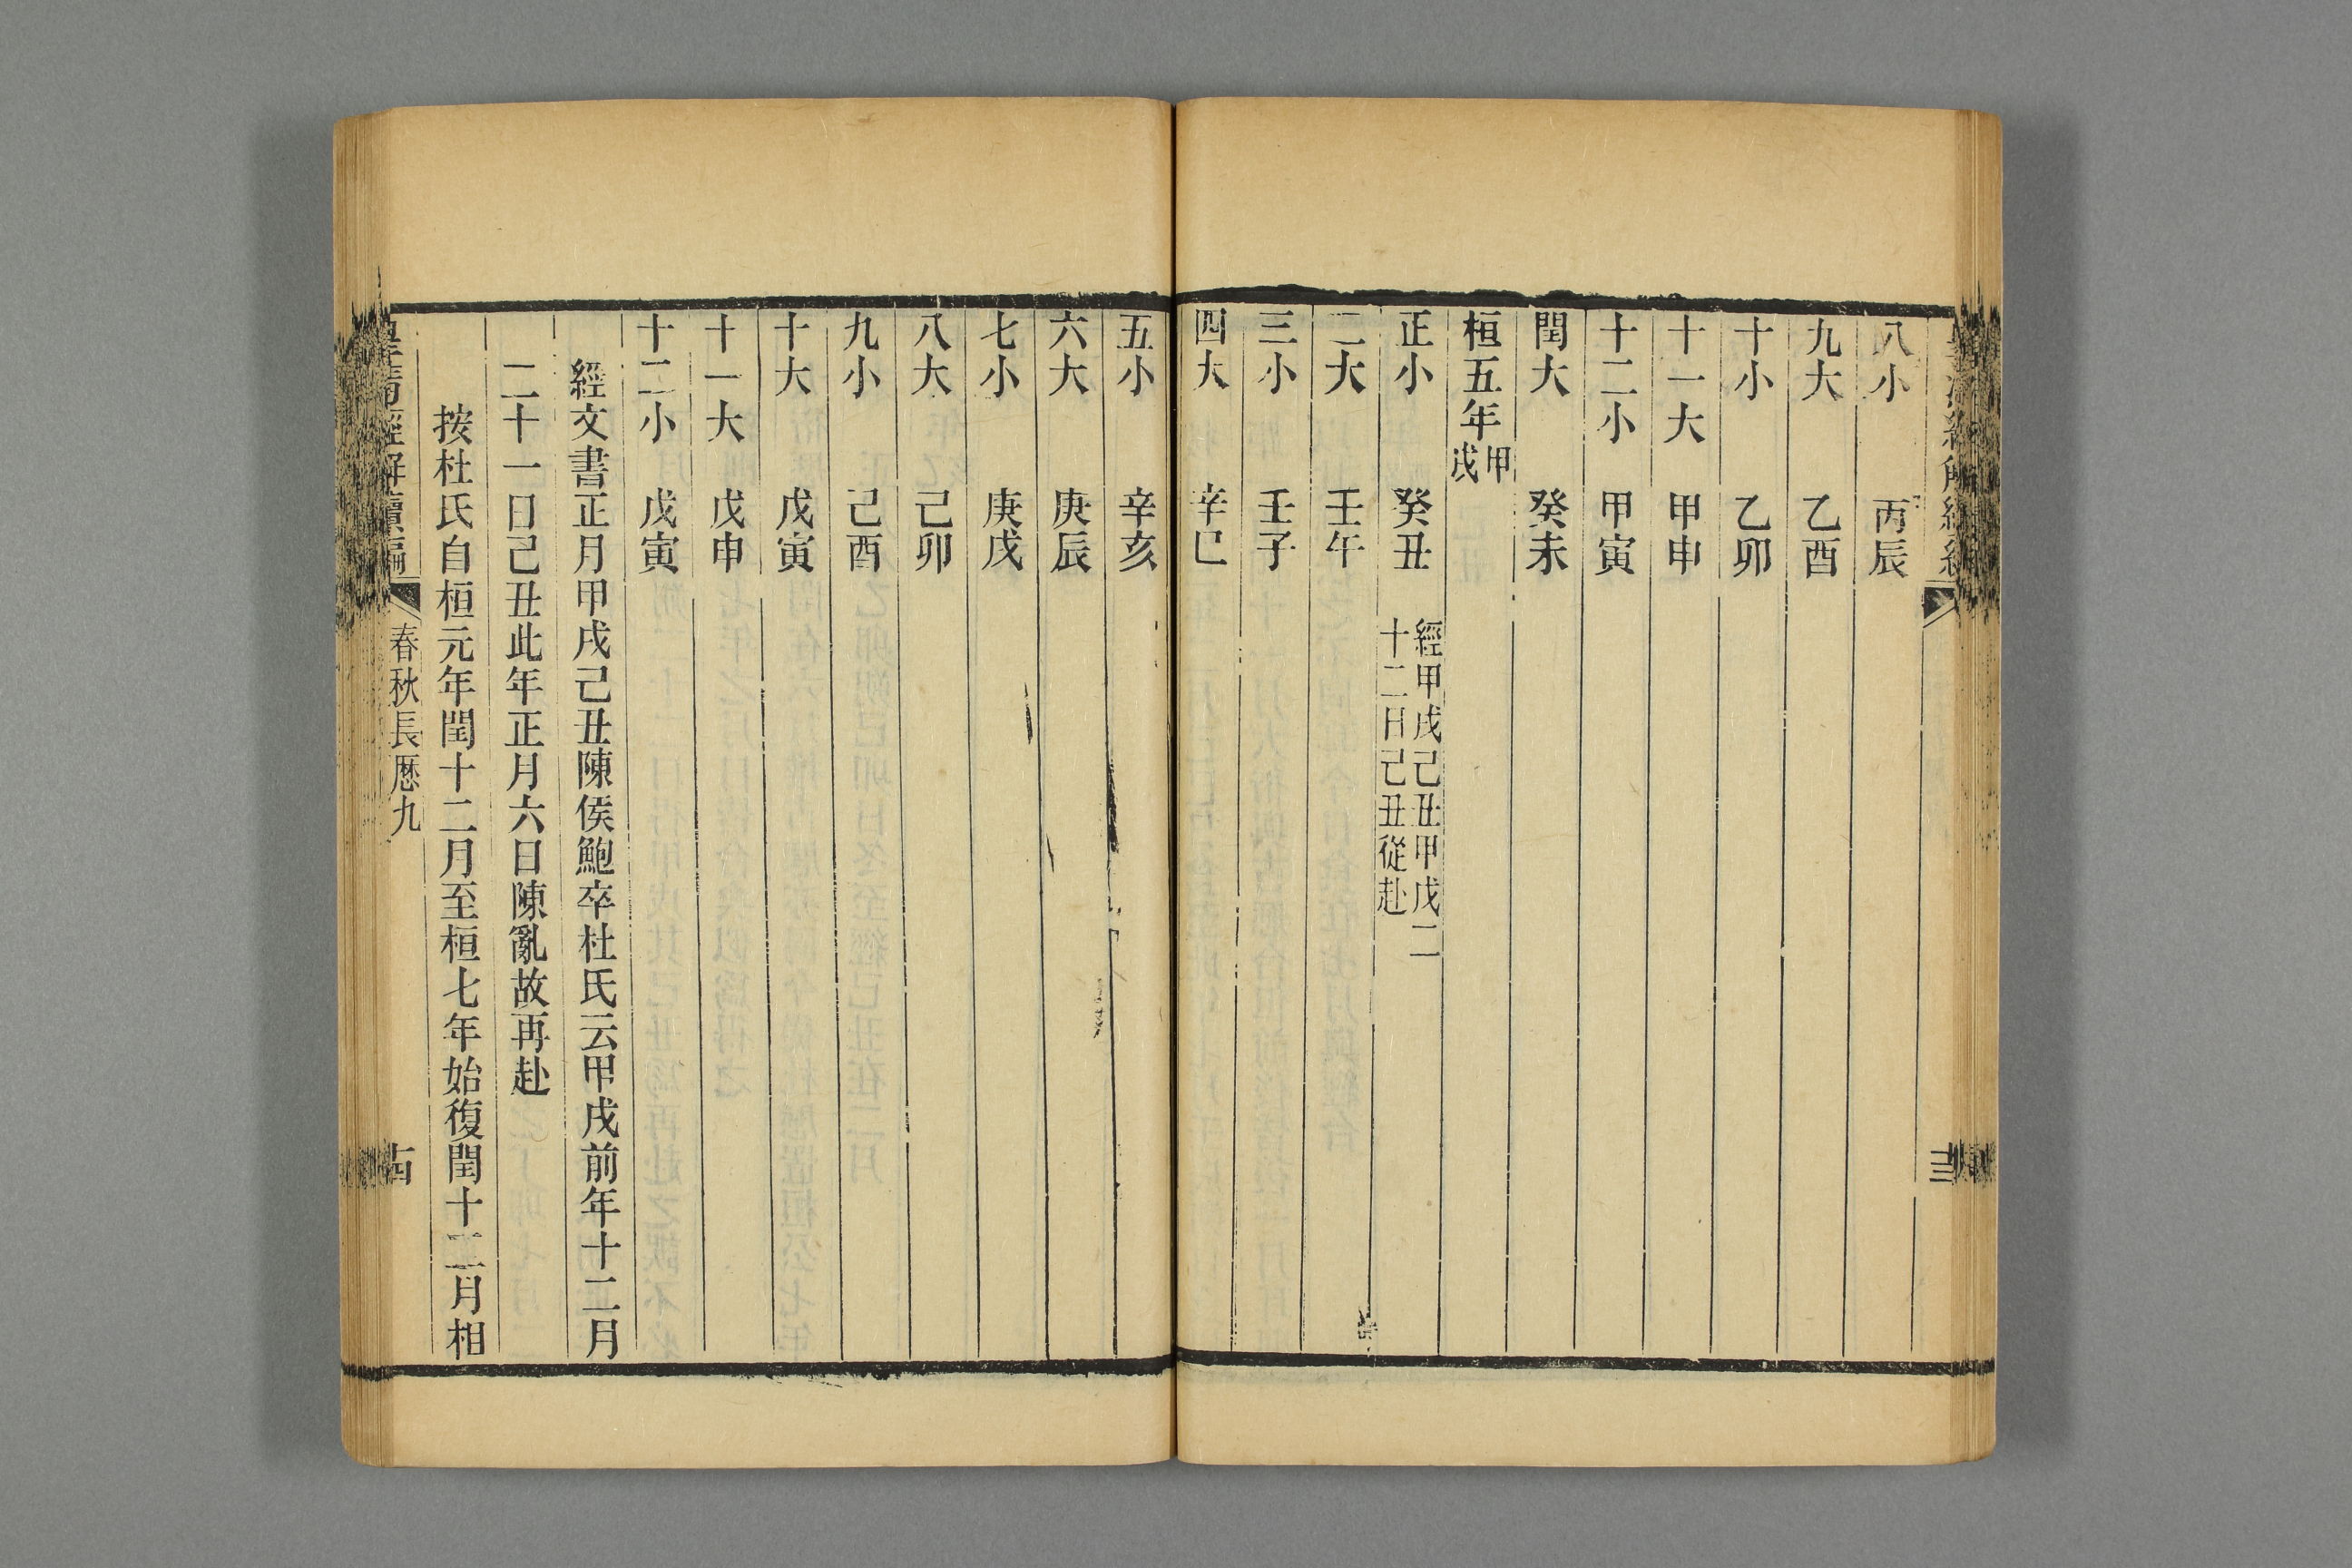 八小 丙辰
九大 乙酉
十小 乙卯
十一大 甲申
十二小 甲寅
閏大 癸未
桓五年甲戌
正小 癸丑 經甲戌己丑甲戊二十二日己丑從赴
二大 壬午
三小 壬子
四大 辛巳
五小 辛亥
六大 庚辰
七小 庚戌
八大 己卯
九小 己酉
十大 戊寅
十一大 戊申
十二小 戊寅
經文書正月甲戌己丑陳侯鮑卒杜氏云甲戌前年十二月
二十一日己丑此年正月六日陳亂故再赴
按杜氏自桓元年閏十二月至桓七年始復閏十二月相
皇清經解續編 春秋長厯九 古